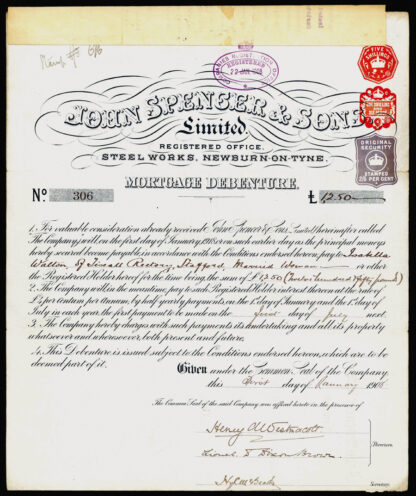 COMPANIES REGISTRATION OFFICE
REGISTERED
22 JAN 1908
FIVE
SHILLINGS
JOHN SPENCER & SONS,
Limited.
REGISTERED OFFICE.
STEEL WORKS, NEWBURN-ON-TYNE.
ORIGINAL
SECURITY
STAMPED
2/6 PER CENT
MORTGAGE DEBENTURE.
No. 306
£ 1250
1. For valuable consideration already received John Spencer & Sons Limited (hereinafter called
The Company) will, on the first day of January 1918 or on such earlier day as the principal moneys
hereby secured become payable in accordance with the Conditions endorsed hereon, pay to Isabella
Walton, of Rectory, Stafford, Married Woman or other
the Registered Holder hereof for the time being the sum of £1250 (Twelve hundred & fifty pounds)
2. The Company will in the meantime pay to such Registered Holder interest thereon at the rate of
per centum per annum, by half-yearly payments on the 1st day of January and the 1st day of
July in each year the first payment to be made on the first day of July next.
3. The Company hereby charges with such payments its undertaking and all its property
whatsoever and wheresoever, both present and future.
4. This Debenture is issued subject to the Conditions endorsed hereon, which are to be
deemed part of it.
Given under the Common Seal of the Company
this First day of January 1908
The Common Seal of the said Company was affixed hereto in the presence of
Henry
Lionel D
Directors.
Secretary.